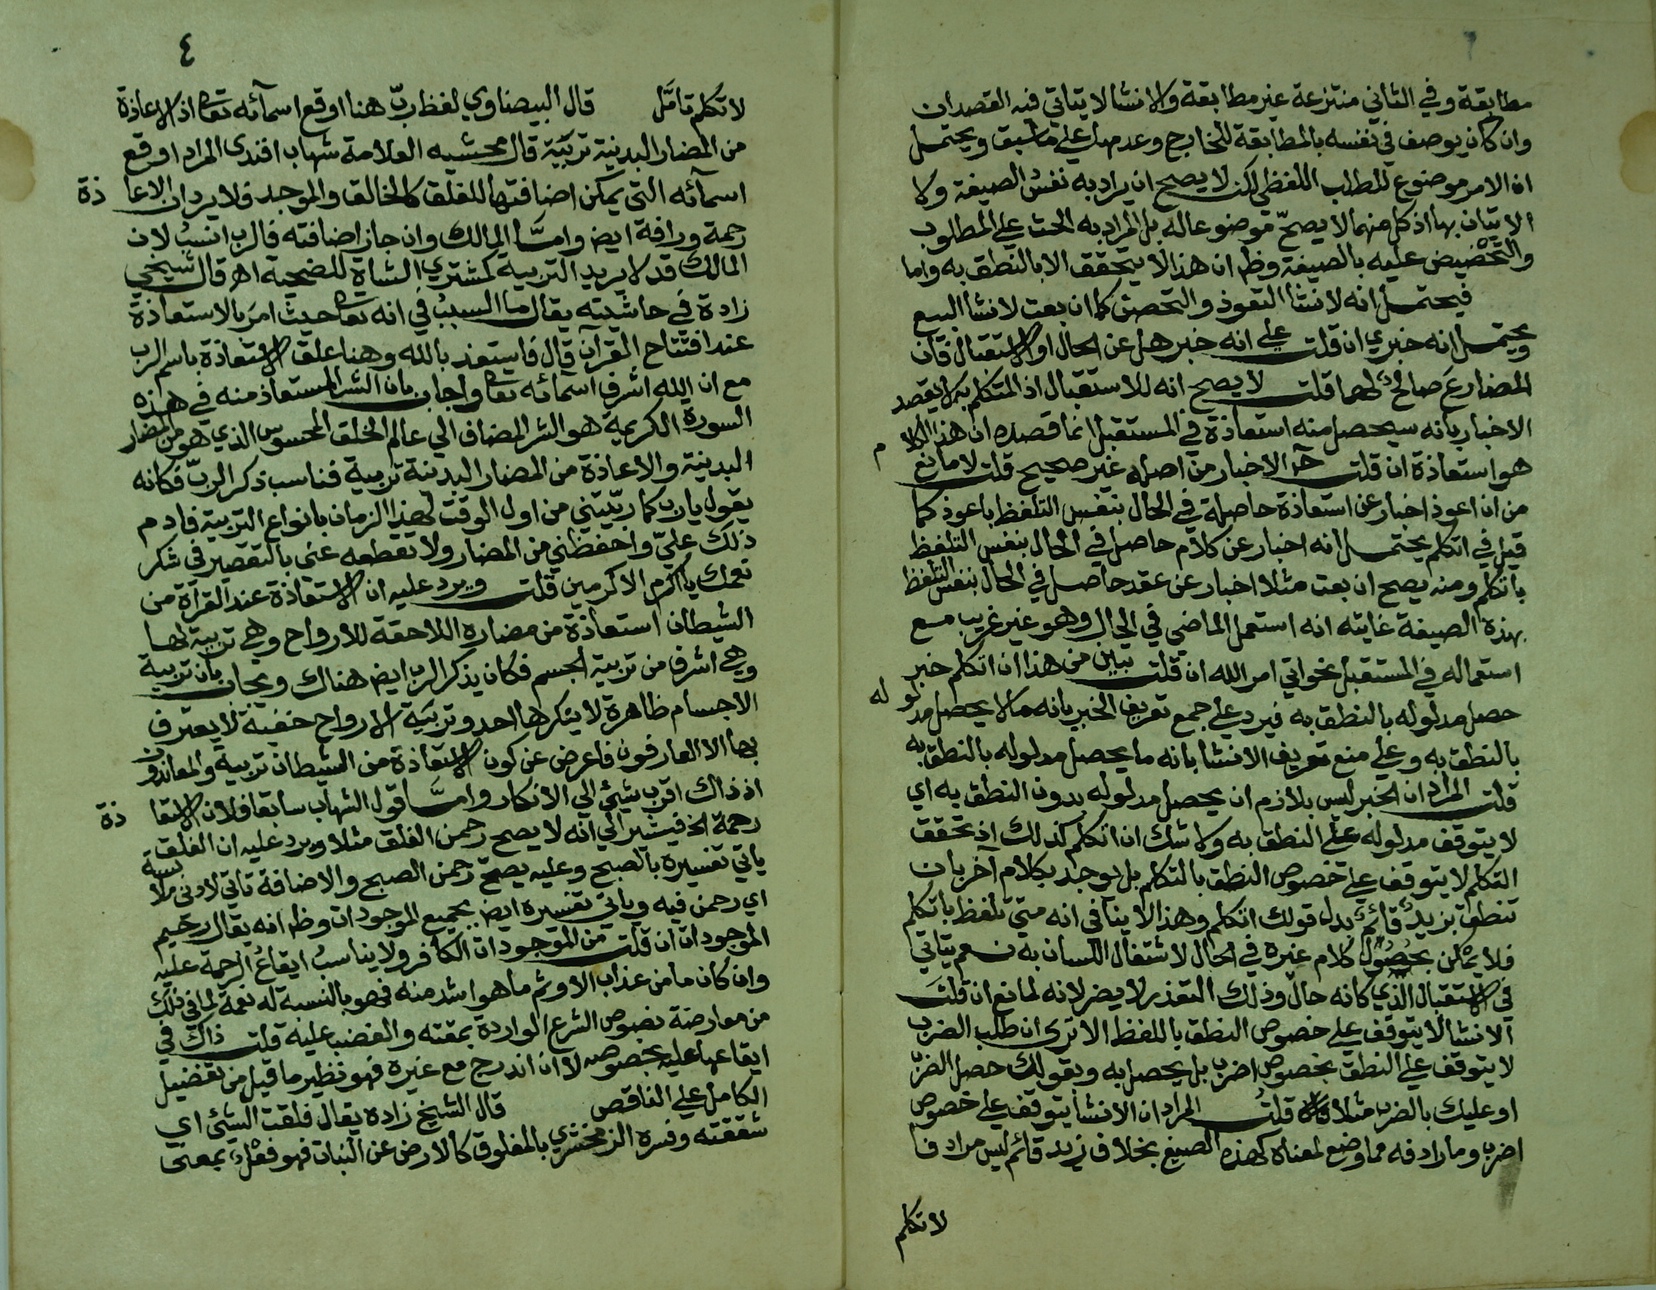 مطابقة وفي الثاني منتزعة غير مطابقة والانشا لا يتاتي فيه القصدان
وان كان يوصف في نفسه بالمطابقة للخارج وعدمها علي ما سبق ويحتمل
ان الامر موضوع للطلب اللفظي لكن لا يصح ان يراد به نفس الصيغة ولا
الاتيان بها اذ كل منهما لا يصح موضوعا له بل المراد به الحث علي المطلوب
والتحضيض عليه بالصيغة وظ ان هذا لا يتحقق الا بالنطق به واما
فيحتمل انه لانشا التعوذ والتحصن كما ان بعت لانشا البيع
ويحتمل انه خبري ان قلت علي انه خبر هل عن الحال او الاستقبال فان
المضارع صالح لهما قلت لا يصح انه للاستقبال اذ المتكلم به لا يقصد
الاخبار بانه سيحصل منه استعاذة في المستقبل انما قصده ان هذا الكلام
هو استعاذة ان قلت الاخبار من اصله غير صحيح قلت لا مانع
من ان اعوذ اخبار عن استعاذة حاصلة في الحال بنفس التلفظ باعوذ كما
قيل في اتكلم يحتمل انه اخبار عن كلام حاصل في الحال بنفس التلفظ
باتكلم ومنه يصح ان بعت مثلا اخبار عن عقد حاصل في الحال بنفس التلفظ
بهذه الصيغة غايته انه استعمل الماضي في الحال وهو غير غريب مع
استعماله في المستقبل نحو اتي امر الله ان قلت يبين من هذا ان اتكلم خبر
حصل مدلوله بالنطق به فيرد علي جمع تعريف الخبر بانه ما لا يحصل مدلوله
بالنطق به وعلي منع تعريف الانشا بانه ما يحصل مدلوله بالنطق به
قلت المراد ان الخبر ليس بلازم ان يحصل مدلوله بدون النطق به اي
لا يتوقف مدلوله علي النطق به ولا شك ان اتكلم كذلك اذ تحقق
التكلم لا يتوقف علي خصوص النطق بالتكلم بل يوجد بكلام آخر بان
تنطق بزيد قائم بدل قولك اتكلم وهذا لا ينافي انه متي تلفظ باتكلم
فلا يمكن بحصول كلام غيره في الحال لاشتغال اللسان به نعم يتاتي
في الاستقبال الذي كانه حال وذلك التعذر لا يضر لانه لمانع ان قلت
الانشا لا يتوقف علي خصوص النطق باللفظ الا تري ان طلب الضرب
لا يتوقف علي النطق بخصوص اضرب بل يحصل به وبقولك حصل الضرب
او عليك بالضرب مثلا قلت المراد ان الانشا يتوقف علي خصوص
اضرب وما رادفه مما وضع لمعناه كهذه الصيغ بخلاف زيد قائم ليس مرادفا
لاتكلم
٤
لاتكلم تامل قال البيضاوي لفظ رب هنا اوقع اسمآئه تعا اذ الاعاذة
من المضار البدنية تربية قال محشيه العلامة شهاب افندي المراد اوقع
اسمآئه التي يمكن اضافتها للفلق كالخالق والموجد فلا يرد ان الاعاذة
رحمة ورافة ايض واما المالك وان جاز اضافته فالرب انسب لان
المالك قد لا يريد التربية كمشتري الشاة للضحية اهـ قال شيخي
زادة في حاشيته يقال ما السبب في انه تعا حيث امر بالاستعاذة
عند افتتاح القرآن قال فاستعذ بالله وهنا علق الاستعاذة باسم الرب
مع ان الله اشرف اسمائه تعا واجاب بان الشر المستعاذ منه في هذه
السورة الكريمة هو الشر المضاف الي عالم الخلق المحسوس الذي هو من المضار
البدينة والاعاذة من المضار البدنية تربية فناسب ذكر الرب فكانه
يقول يارب كما ربيتني من اول الوقت لهذا الزمان بانواع التربية فادم
ذلك علي واحفظني من المضار ولا تقطعه عني بالتقصير في شكر
نعمك يا اكرم الاكرمين قلت ويرد عليه ان الاستعاذة عند القرآة من
الشيطان استعاذة من مضاره اللاحقة للارواح وهي تربية لها
وهي اشرف من تربية الجسم فكان يذكر الرب ايض هناك ويجاب بان تربية
الاجسام ظاهرة لا ينكرها احد وتربية الارواح خفية لا يعترف
بها الا العارفون فاعرض عن كون الاستعاذة من الشيطان تربية والمعاندون
اذ ذاك اقرب شئ الي الانكار واما قول الشهاب سابقا فلان الاعاذة
رحمة الخ فيشير الي انه لا يصح رحمن الفلق مثلا ويرد عليه ان الفلق
ياتي تفسيره بالصبح وعليه يصح رحمن الصبح والاضافة تاتي لادني ملابسة
اي رحمن فيه وياتي تفسيره ايض بجميع الموجودات وظ انه يقال رحيم
الموجودات ان قلت من الموجودات الكافر ولا يناسب ايقاع الرحمة عليه
وان كان ما من عذاب الا وثم ما هو اشد منه فهو بالنسبة له نعمة لما في ذلك
من معارضة نصوص الشرع الواردة بمقته والغضب عليه قلت ذاك في
ايقاعها عليه بخصوصه لا ان اندرج مع غيره فهو نظير ما قيل من تفضيل
الكامل علي الناقص قال الشيخ زاده يقال فلقت الشئ اي
شققته وفسره الزمخشري بالمفلوق كالارض عن النبات فهو فعل بمعني